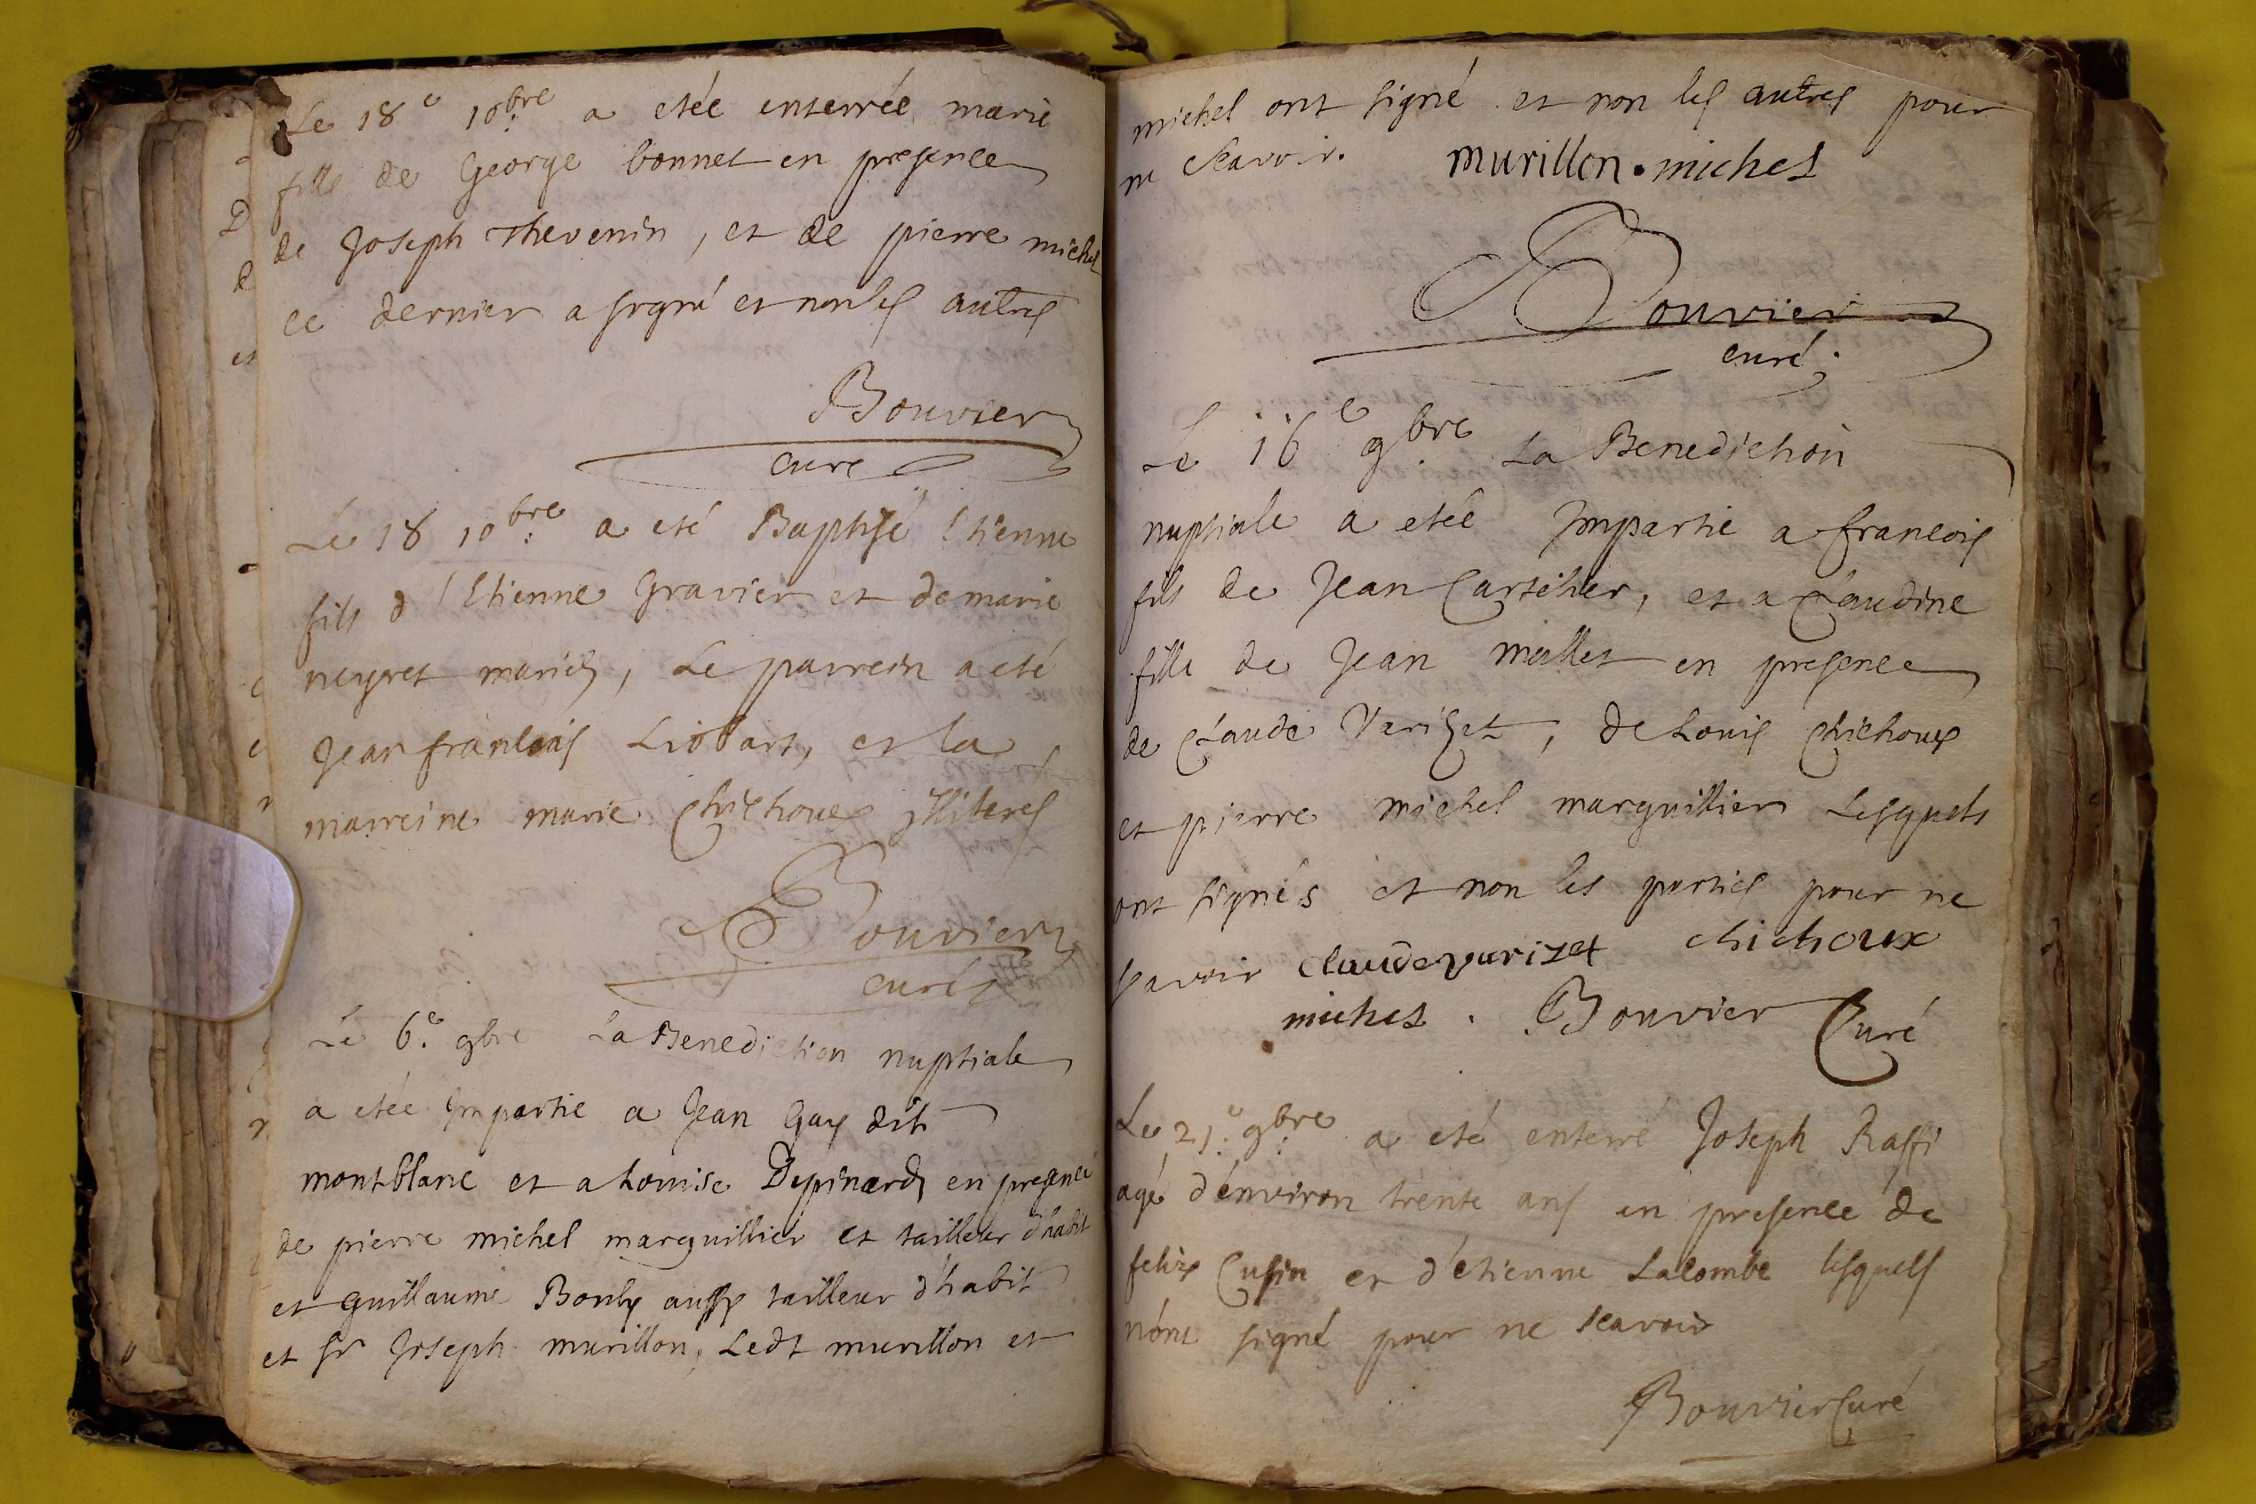 Le 18e 10bre a etée enterrée marie
fille de George bonnet en presence
de Joseph Thevenin, et de pierre michel
ce dernier a signé et non les autres
Bouvier
curé
Le 18 10bre a eté Baptisé Etienne
fils d'Etienne Gravier et de marie
neyret mariés, Le parrein a eté
Jean francois Liobart, et la
marreine marie Chichoux illiterés
Bouvier
curé
Le 6e 9bre La Benediction nuptiale
a etée Impartie a Jean Gay dit
montblanc et a Louise Depinard en presence
de pierre michel marguillier et tailleur d'habit
et guillaume Bouly aussy tailleur d'habit
et sr Joseph murillon, Ledt murillon et
michel ont signé et non les autres pour
ne scavoir. murillon. michel
Bouvier
curé.
Le 16e 9bre La Benediction
nuptiale a etée Impartie a francois
fils de Jean Cartelier, et a Claudine
fille de Jean mallet en presence
de Claude Varizet, de Louis Chichoux
et pierre michel marguillier Lesquels
ont signés et non les parties pour ne
scavoir Claude varizet chichoux
michel. Bouvier Curé
Le 21e 9bre a eté enterré Joseph Raffi
agé d'environ trente ans en presence de
felix Cusin et d'etienne Lacombe lesquels
n'ont signé pour ne scavoir
Bouvier Curé